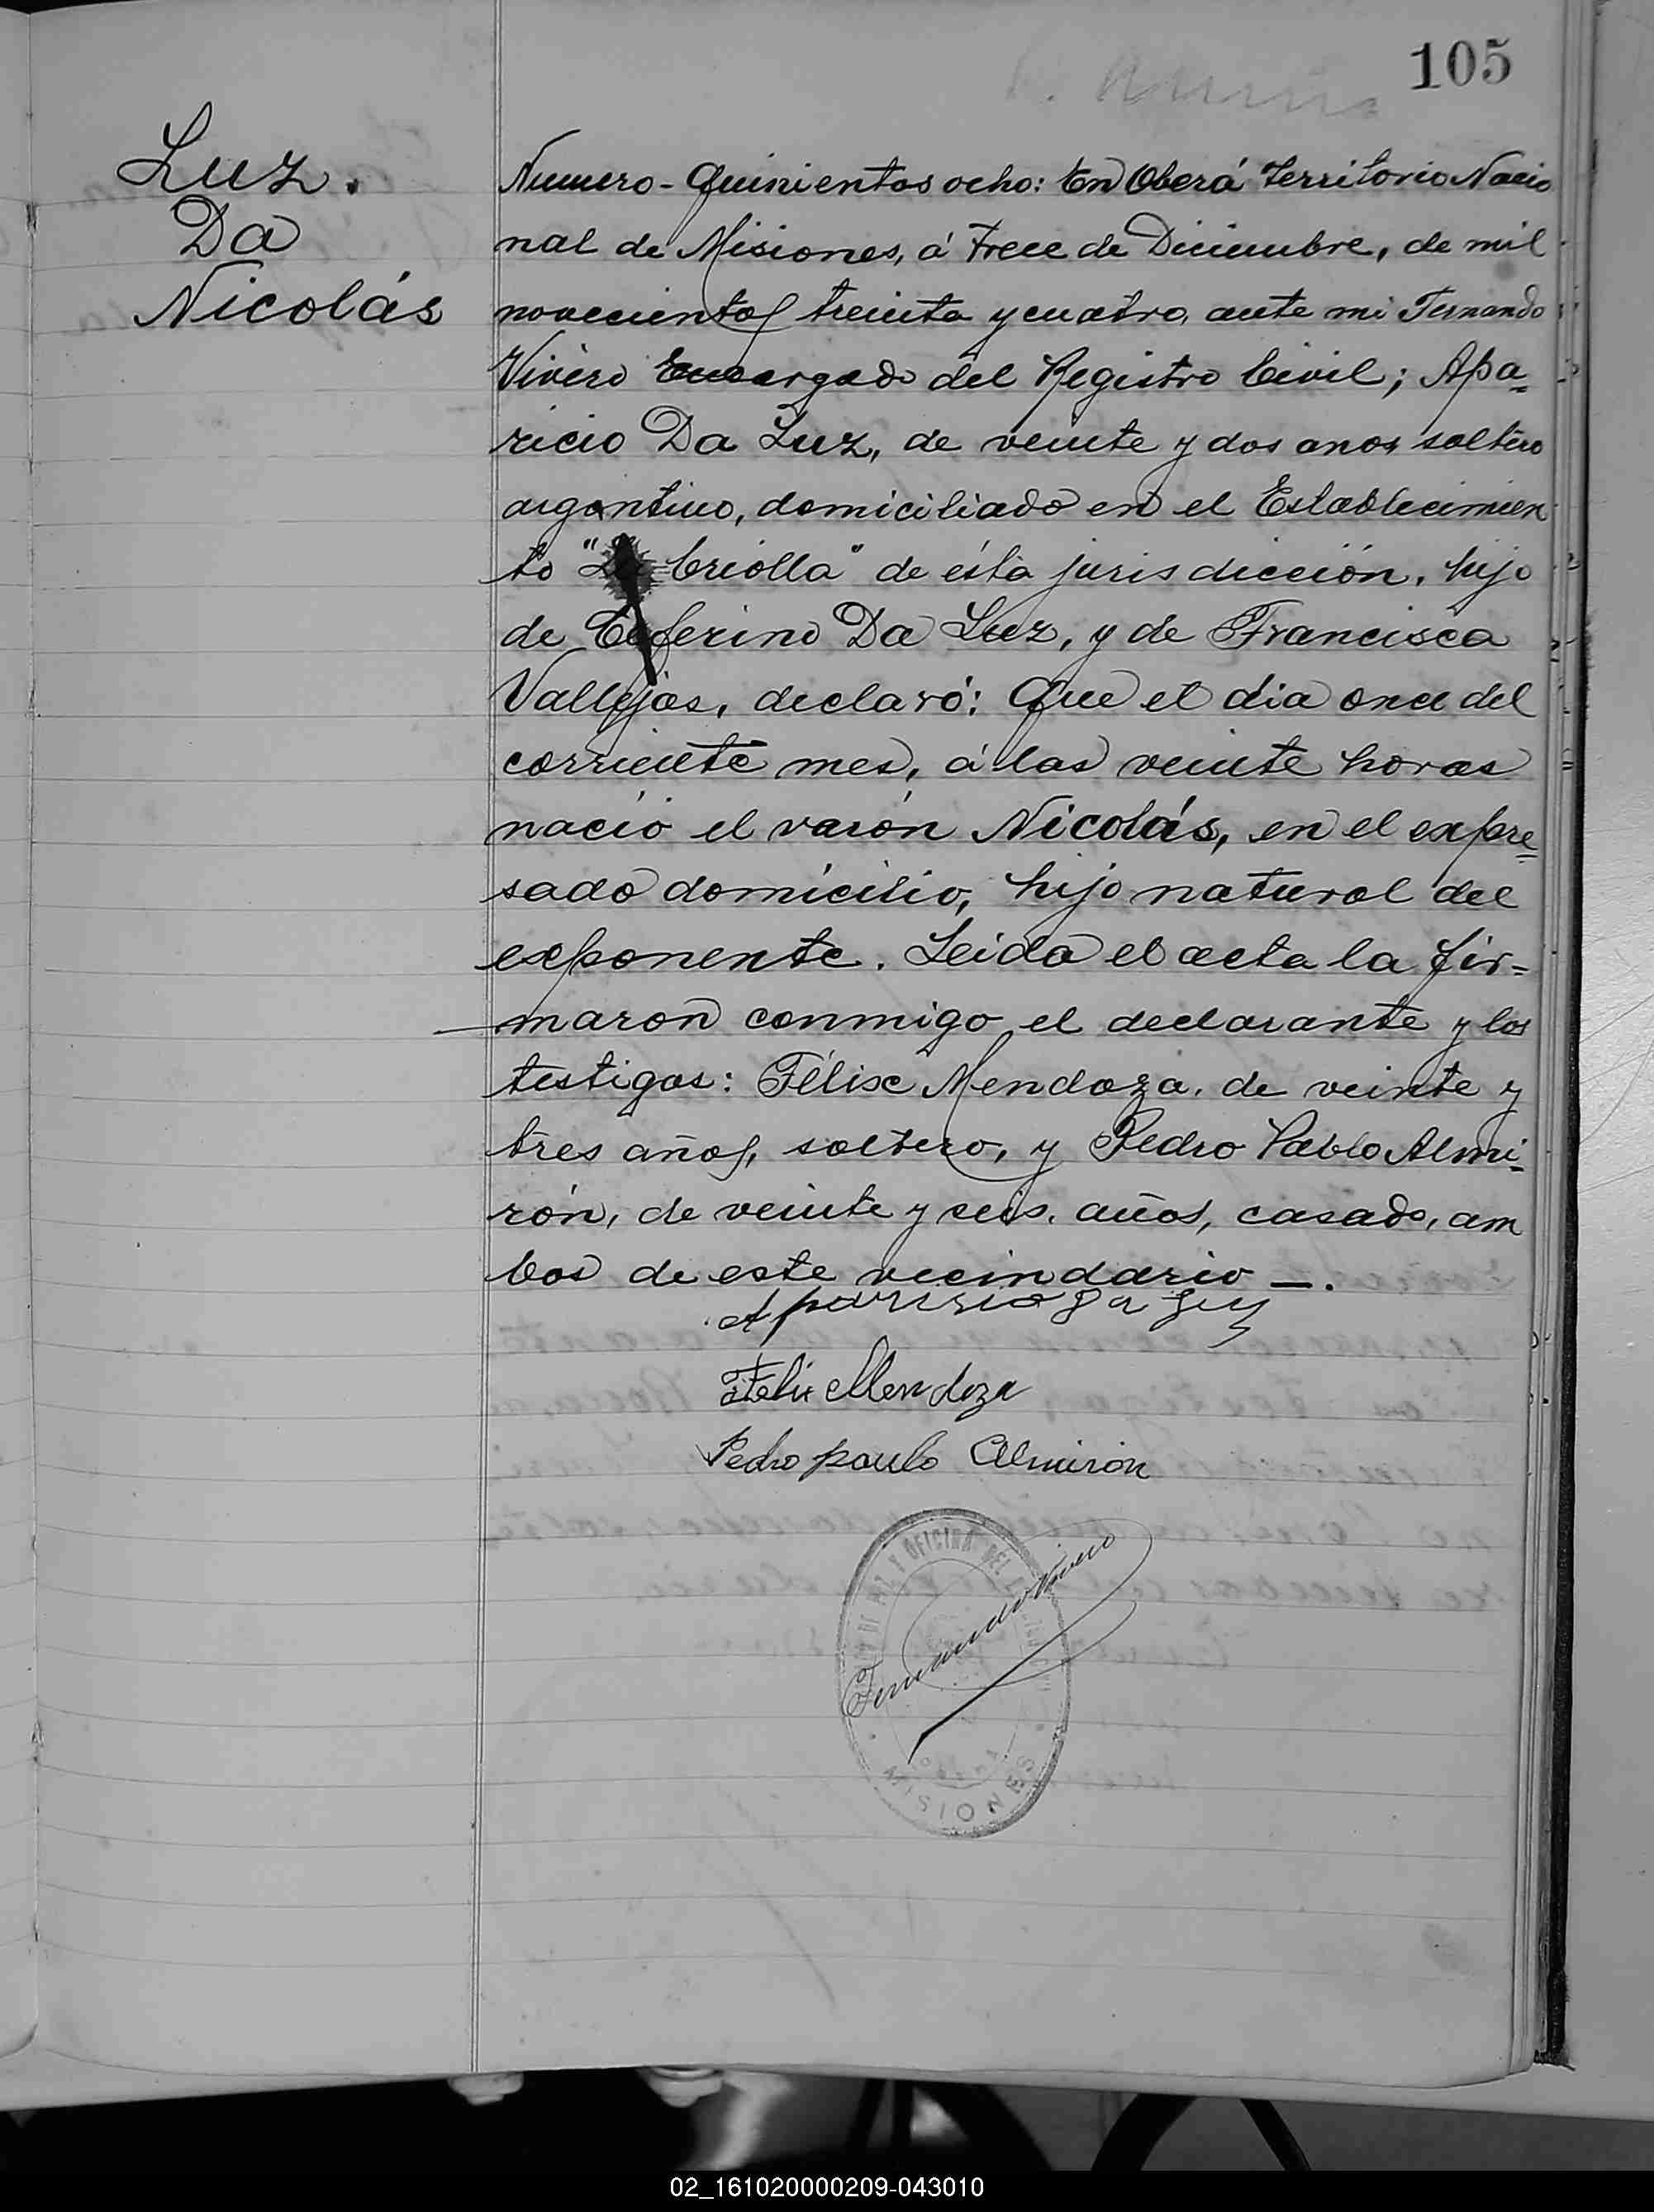 105
Luz.
Da
Nicolás
Numero - Quinientos ocho: En Oberá Territorio Nacio
nal de Misiones, á trece de Diciembre, de mil
novecientos treinta y cuatro, ante mi Fernando
Vivero Encargado del Registro Civil; Apa=
ricio Da Luz, de veinte y dos anos soltero
argentino, domiciliado en el Establecimien
to "La Criolla" de ésta jurisdicción, hijo
de Ceferino Da Luz, y de Francisca
Vallejos, declaró: Que el dia once del
corriente mes, á las veinte horas
nació el varón Nicolás, en el expre=
sado domicilio, hijo natural del
exponente. Leida el acta la fir=
maron conmigo el declarante y los
testigos: Félix Mendoza, de veinte y
tres años, soltero, y Pedro Pablo Almi=
rón, de veinte y seis, años, casado, am
bos de este vecindario —.
Aparisio Da Luz
Felix Mendoza
Pedro paulo Almirón
OFICINA DEL
Fernando Vivero
MISIONES
02_161020000209-043010